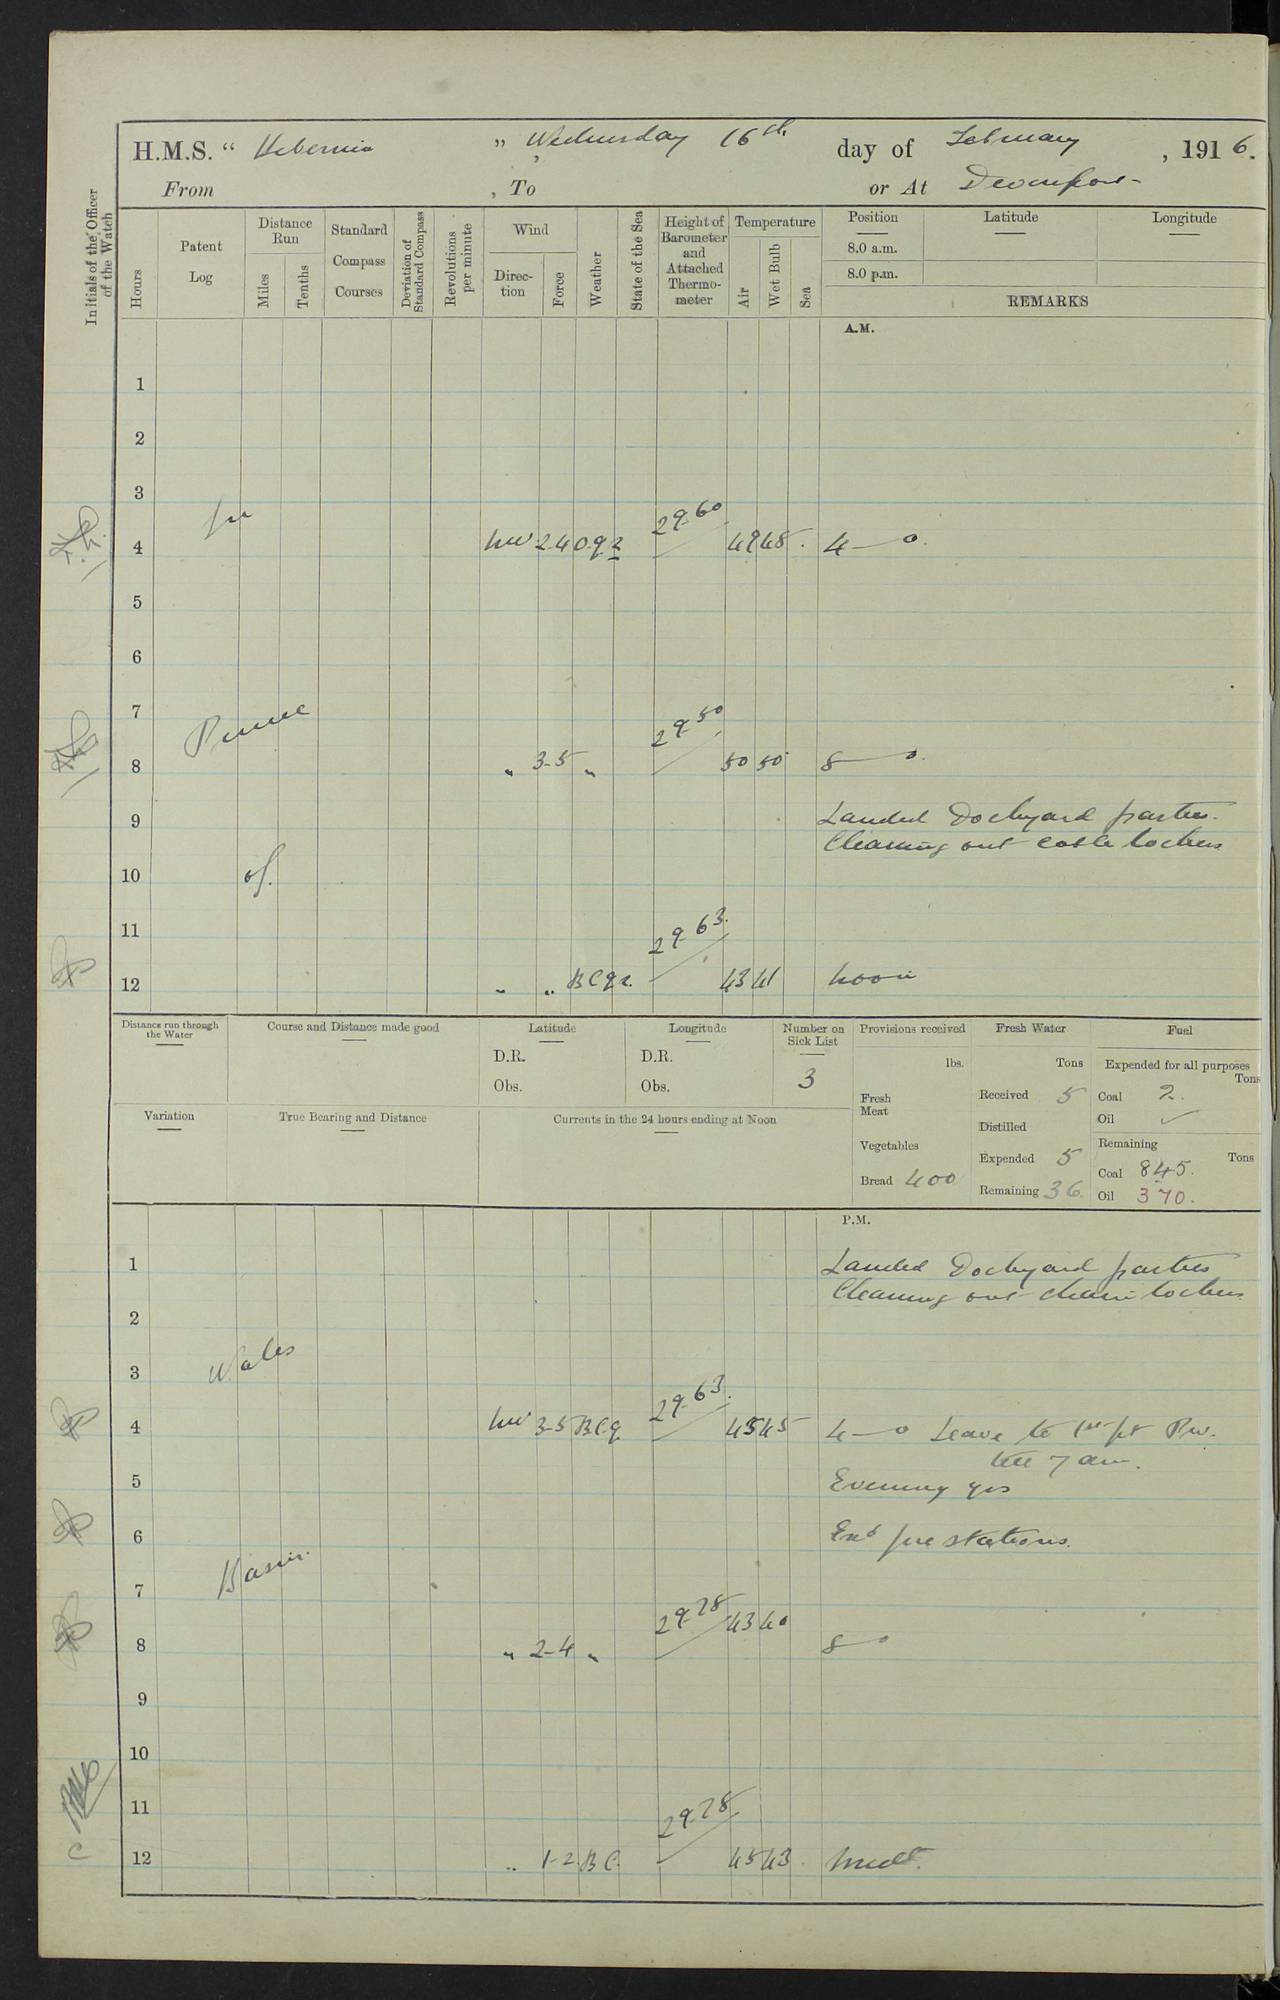 H.M.S. " Hibernia " Wednesday 16th day of February , 1916.
From , To or At Devonport
Initials of the Officer of the Watch
Hours
Patent Log
Distance Run
Miles
Tenths
Standard Compass Courses
Deviation of Standard Compass
Revolutions per minute
Wind
Direc- tion
Force
Weather
State of the Sea
Height of Barometer and Attached Thermo- meter
Temperature
Air
Wet Bulb
Sea
Position Latitude Longitude
8.0 a.m.
8.0 p.m.
REMARKS
A.M.
1
2
3
In
4 NW 2.4 29.60 49 48 4—0
5
6
7
Prince
8 " 3-5 " 29.50 50 50 8—0
9 Landed Dockyard parties.
Cleaning out cable lockers
10 of.
11
12 " " BCqr. 29.63 43 41 Noon
Distance run through the Water
Course and Distance made good
Latitude
D.R.
Obs.
Longitude
D.R.
Obs.
Number on Sick List
3
Provisions received
lbs.
Fresh Meat
Vegetables
Bread 400
Fresh Water
Tons
Received 5
Distilled
Expended 5
Remaining 36
Fuel
Expended for all purposes
Tons
Coal 2.
Oil ✓
Remaining
Tons
Coal 845.
Oil 370.
Variation
True Bearing and Distance
Currents in the 24 hours ending at Noon
P.M.
1 Landed Dockyard parties
Cleaning out chain lockers
2
3 Wales
4 NW 3-5 BCq 29.63. 45 45 4—0 Leave to 1st pt PW.
till 7 am.
5 Evening qrs
6 Exd fire stations.
Basin.
7
8 " 2-4 " 29.78 43 40 8—0
9
10
11
12 " 1-2 BC. 29.78 45 43 Midt.